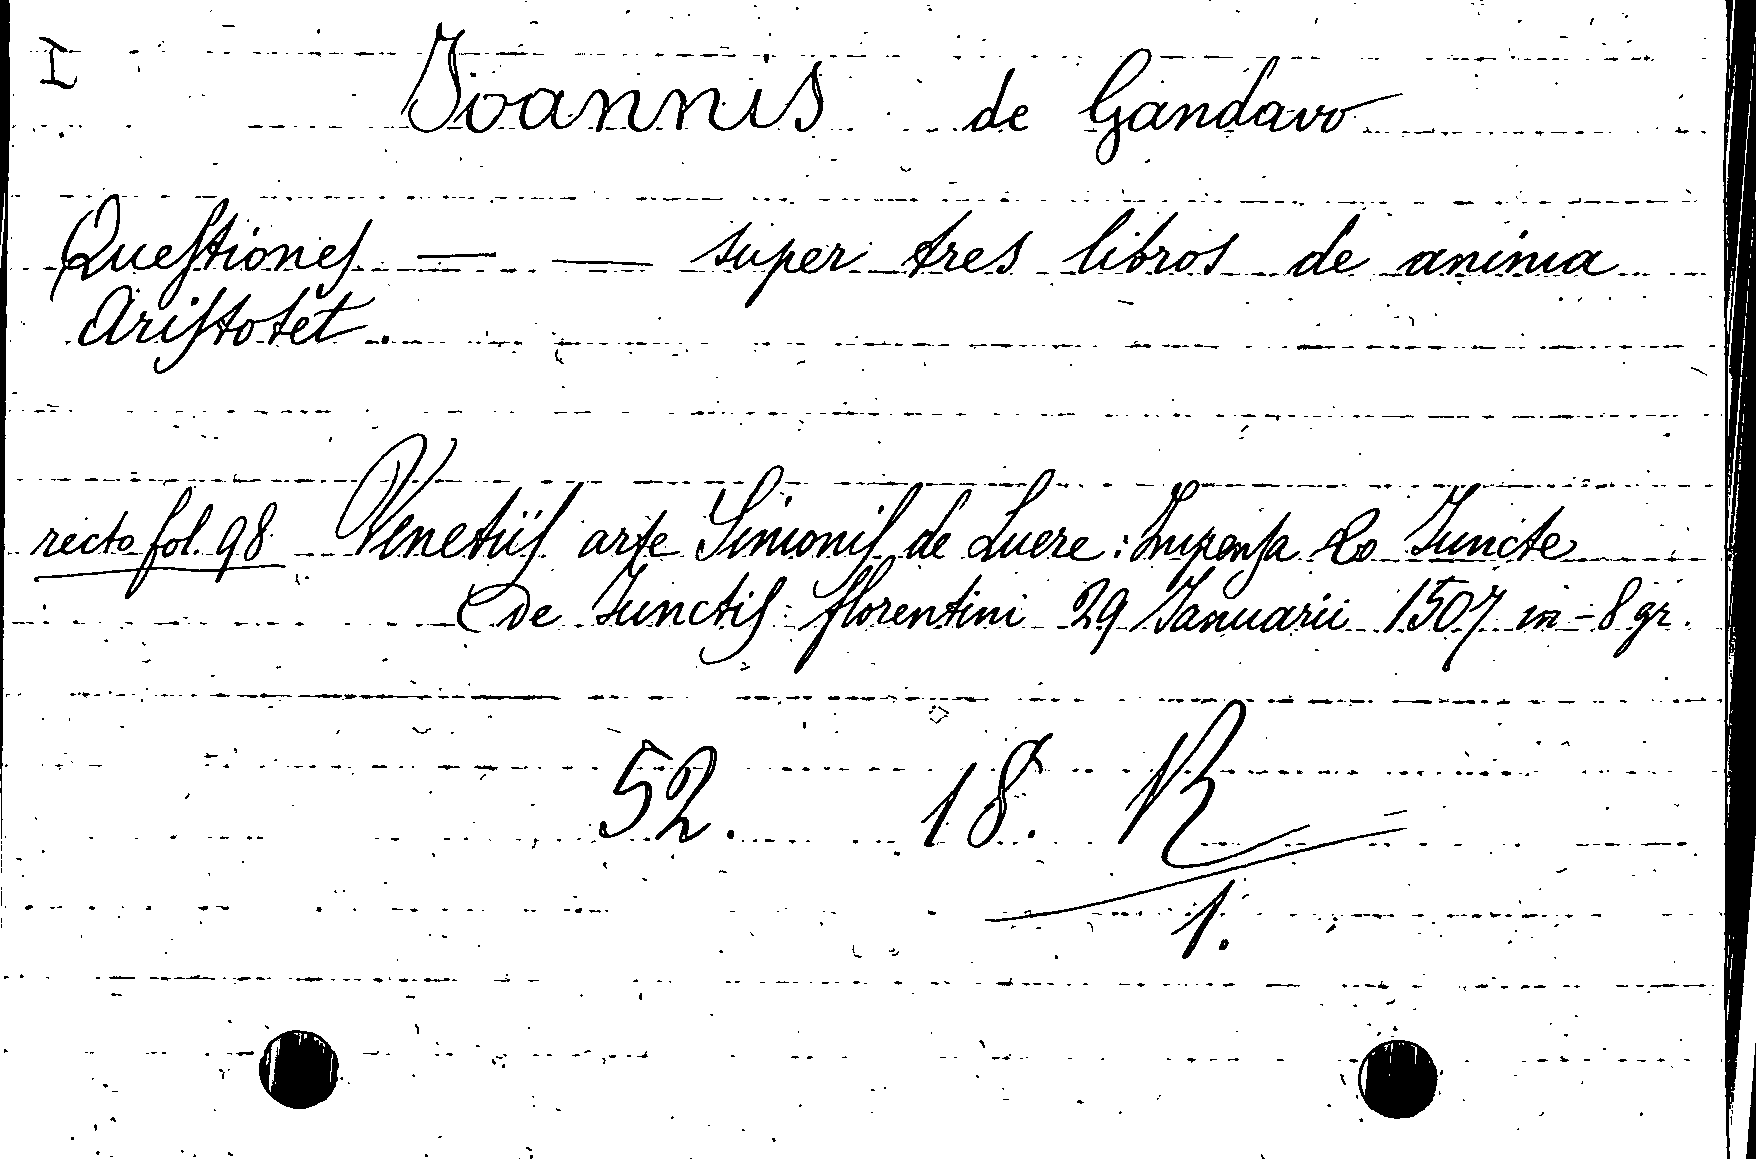 I
Ioannis de Gandavo
Queſtioneſ — — super tres libros de anima
Ariſtotet.
recto fol. 98 Venetiiſ arte Simoniſ de Luere: Impenſa Do Iuncte
De Iunctiſ florentini 29 Ianuarii 1507 in-8 gr.
52. 18. R
1.